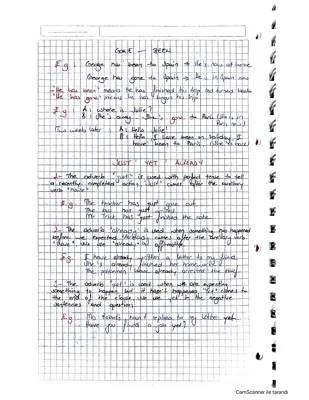 GONE - BEEN
E.g: George has been to Spain → He's now at home
George has gone to Spain → He is in Spain now
"He has been" means he has finished his trip and turned back
"He has gone" means he hasn't his trip
E.g: A: Where is Julie?
B: She's away - She's gone to Paris (She is in Paris now)
Two weeks later: A: Hello Julie!
B: Hello I have been on holiday. I
have been to Paris.
JUST - YET - ALREADY
1- The adverb "just" is used with perfect tense to tell
a recently completed action. "Just" comes after the auxiliary
verb "have"
E.g: The teacher has just gone out.
The bus has just
Mr. has just the
2- The adverb "already" is used when something has happened
before we expected. Already comes after the auxiliary verb
"have". We use "already" in affirmative
E.g: I have already written a letter to my friend.
She's already finished her home-work.
The policemen have already arrested the
3- The adverb "yet" is used when we are expecting
something to happen but it hasn't happened. "Yet" comes to
the end of the clause we use yet in the negative
sentences and questions.
E.g: Mr. hasn't replied to my letter yet.
Have you found a job yet?
CamScanner ile tarandı